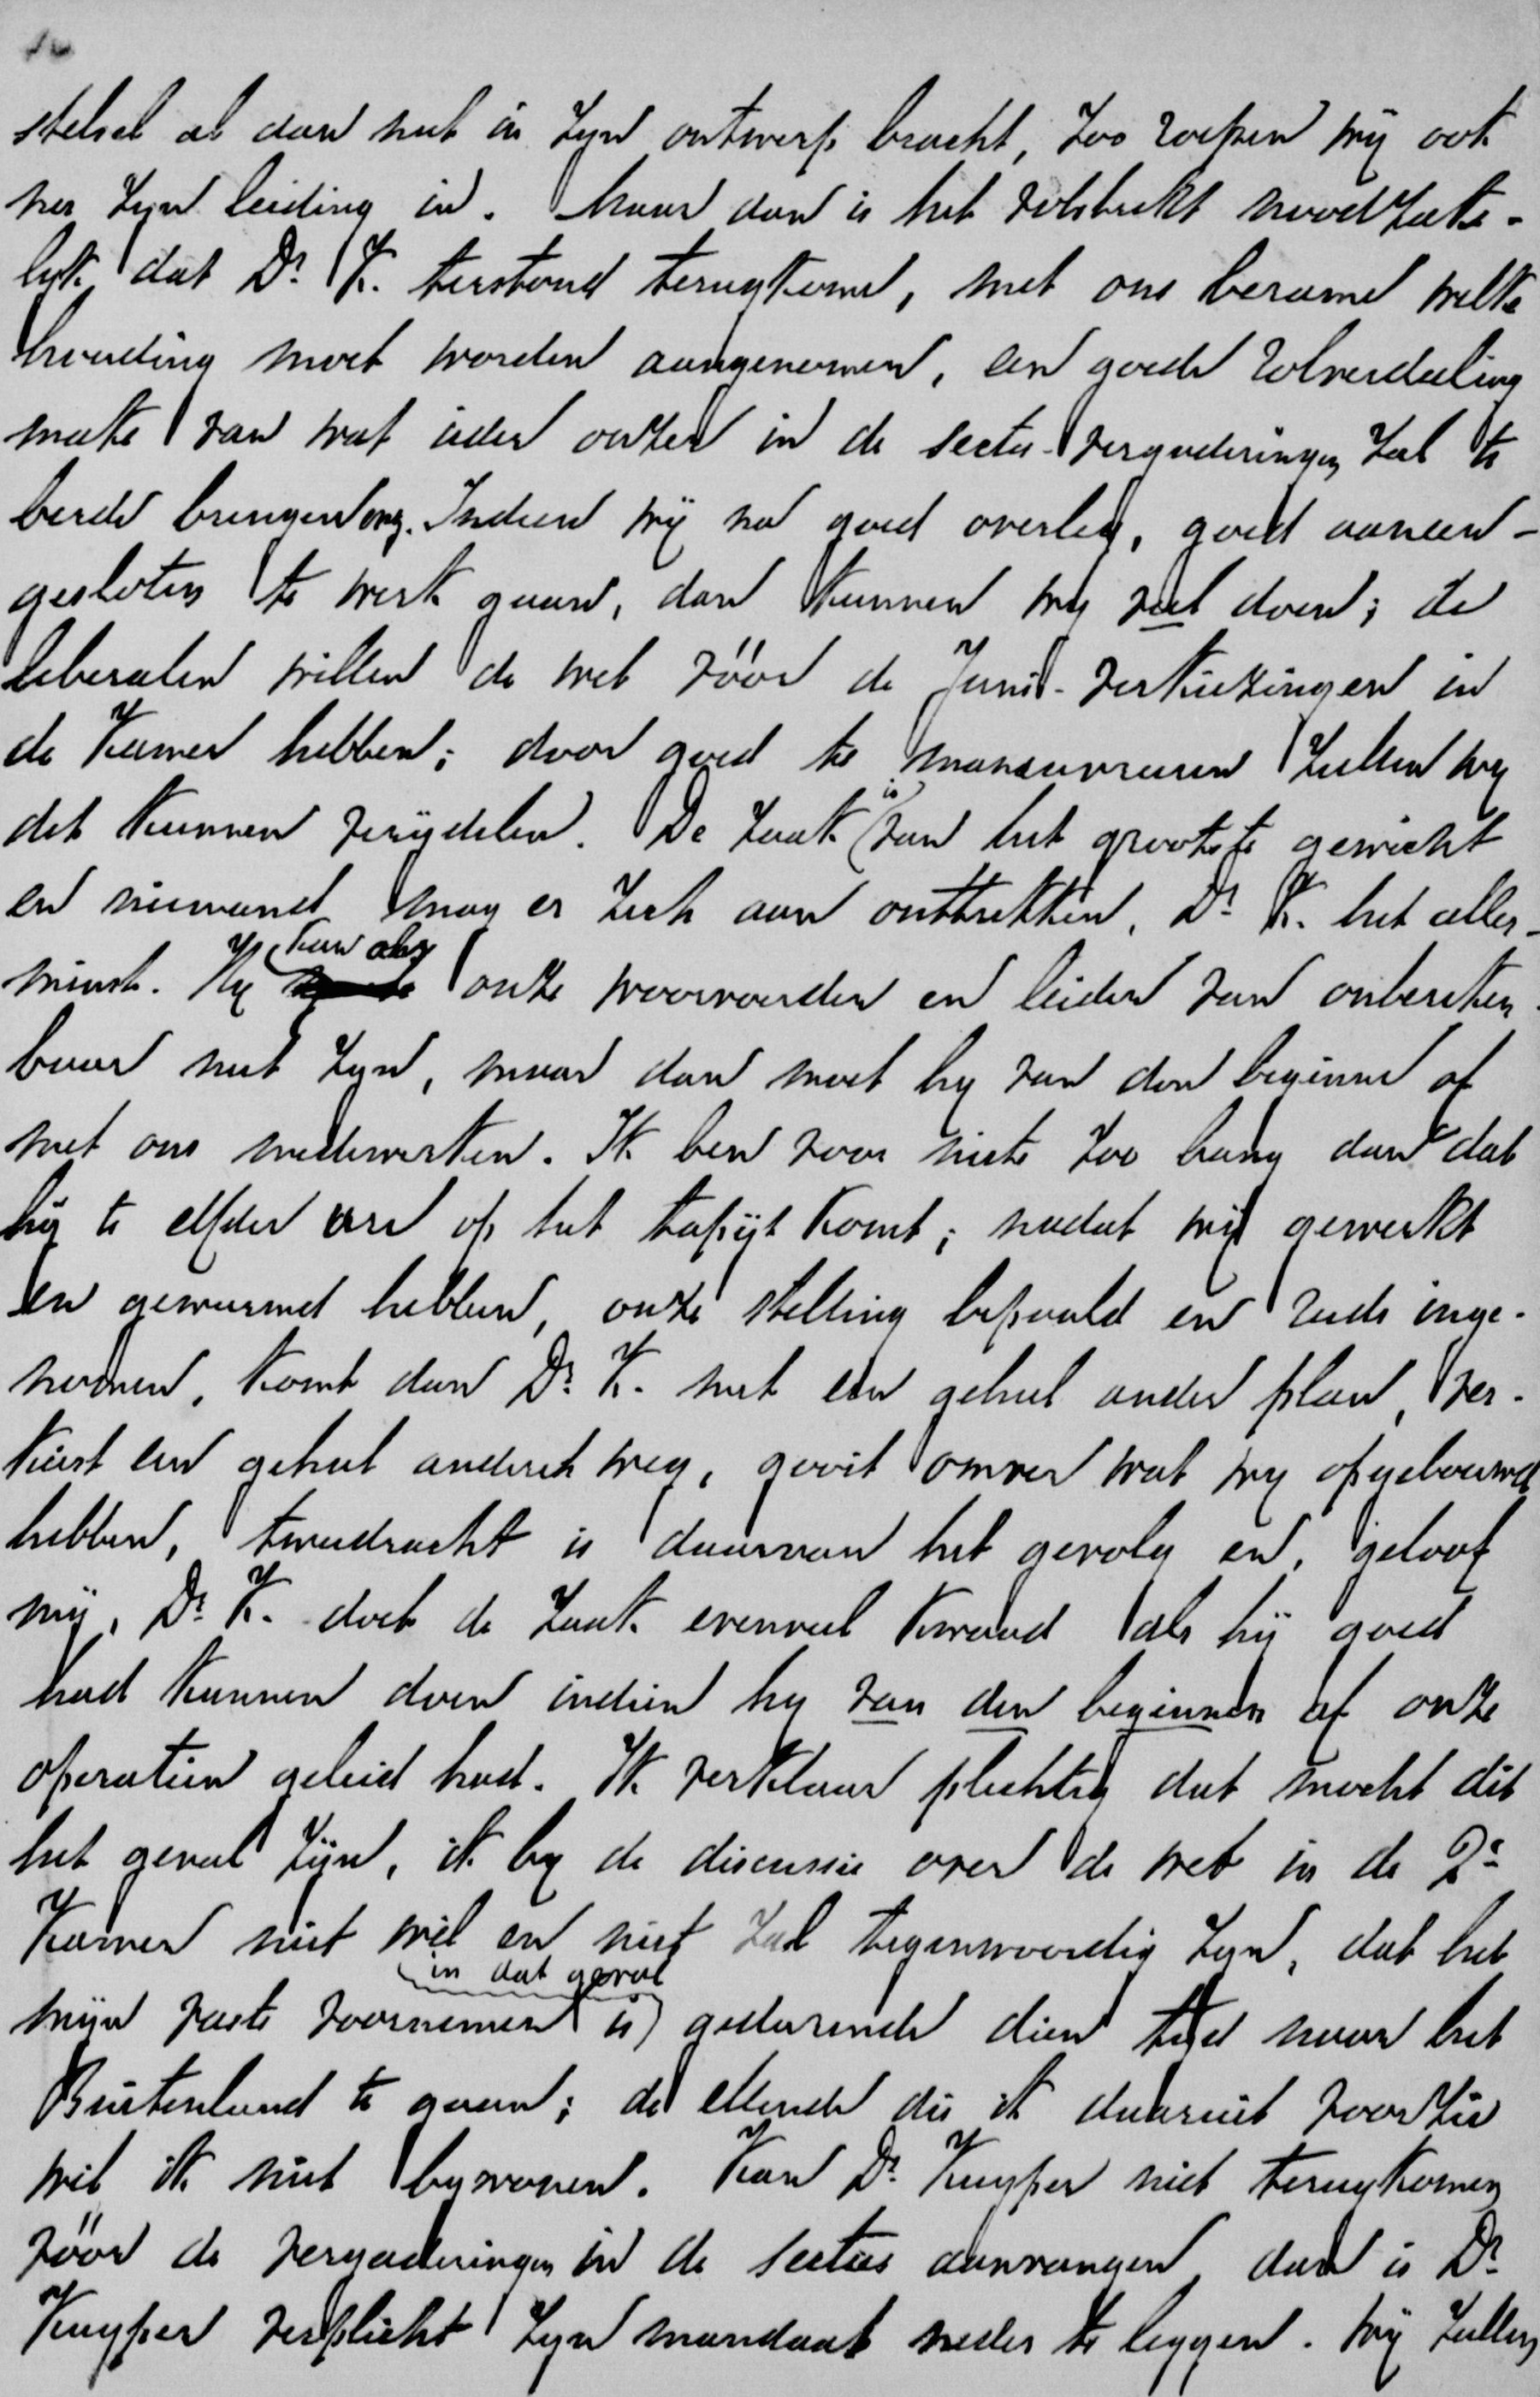 stelsel al dan niet in zyn ontwerp bracht, zoo roepen wij ook
zyn leiding in. Maar dan is het volstrekt noodzake-
lyk dat Dr. K. terstond terugkome, met ons berame welke
houding moet worden aangenomen, een goede rolverdeeling
make van wat ieder onzer in de sectie-vergaderingen zal te
berde brengen enz. Indien wij na goed overleg, goed aaneen-
gesloten te werk gaan, dan kunnen wy veel doen; de
liberalen willen de wet vóór de Juni-verkiezingen in
de Kamer hebben; door goed te manoeuvreeren zullen wy
dat kunnen verijdelen. De zaak is van het grootste gewicht
en niemand mag er zich aan onttrekken, Dr. K. het aller-
minst. Hy kan als onze woordvoerder en leider van onbereken-
baar nut zyn, maar dan moet hy van den beginne af
met ons medewerken. Ik ben voor niets zoo bang dan dat
hij te elfder ure op het tapijt komt; nadat wij gewerkt
en gewurmd hebben, onze stelling bepaald en reeds inge-
nomen, komt dan Dr. K. met een geheel ander plan, ver-
kiest een geheel anderen weg, gooit omver wat wy opgebouwd
hebben, tweedracht is daarvan het gevolg en, geloof
mij, Dr. K. doet de zaak evenveel kwaad als hij goed
had kunnen doen indien hy van den beginne af onze
operatien geleid had. Ik verklaar plechtig dat mocht dit
het geval zijn, ik by de discussie over de wet in de 2e
Kamer niet wil en niet zal tegenwoordig zyn, dat het
in dat geval
mijn vaste voornemen is gedurende dien tijd naar het
Buitenland te gaan; de ellende die ik daaruit voorzie
wil ik niet bywonen. Kan Dr. Kuyper niet terugkomen
vóór de vergaderingen in de secties aanvangen dan is Dr.
Kuyper verplicht zyn mandaat neder te leggen. Wij zullen